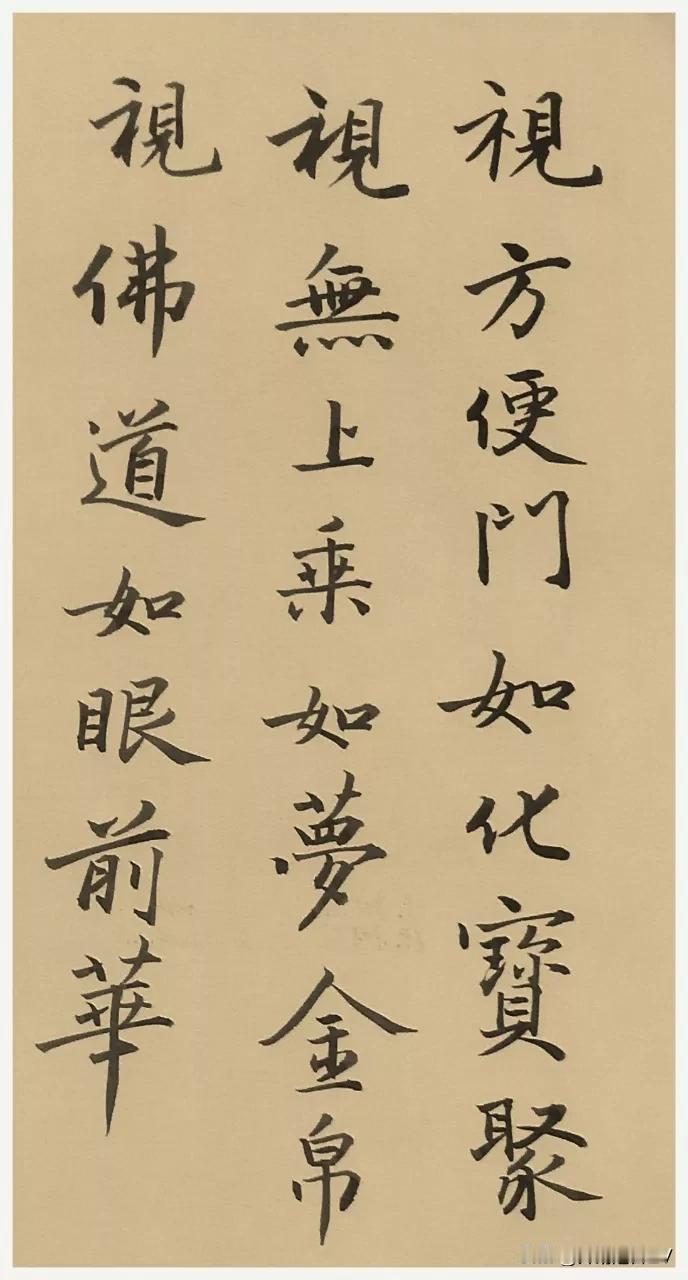 視方便門如化寶聚
視無上乗如夢金帛
視佛道如眼前華